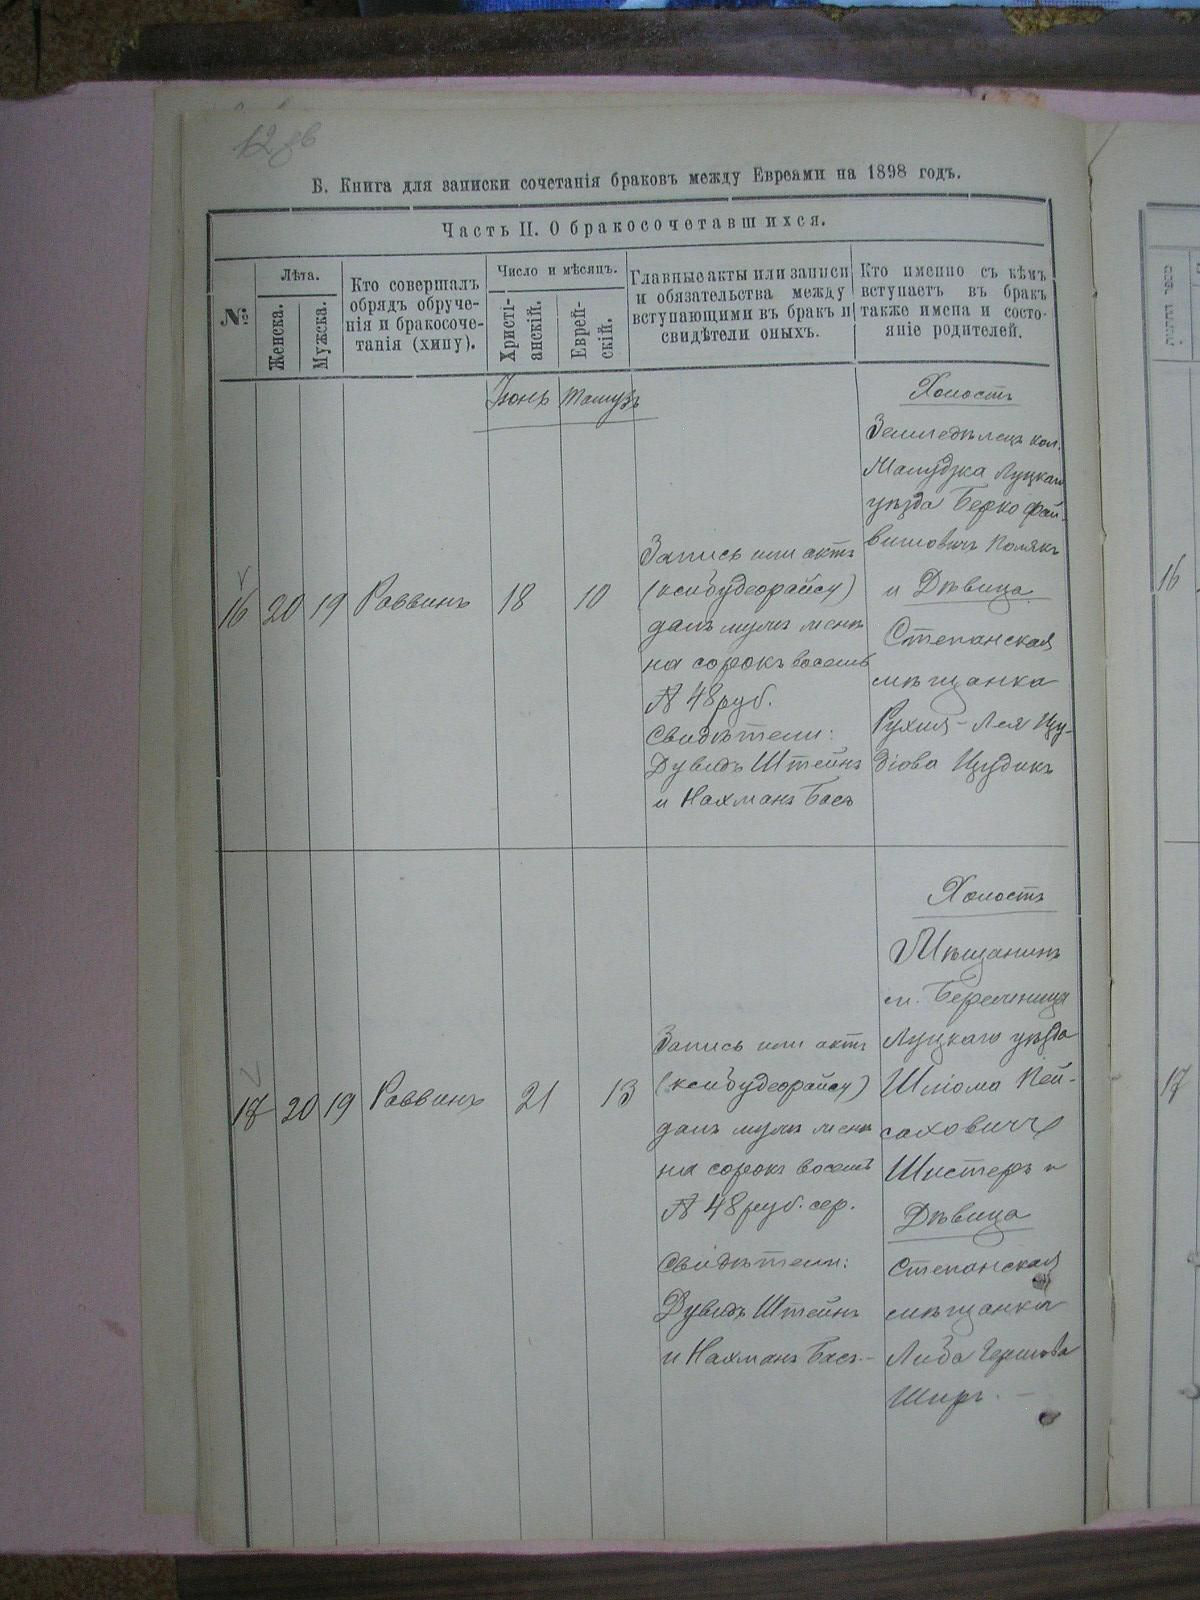 12 об
Б. Книга для записки сочетанія браковъ между Евреями на 1898 годъ.
Часть II. О бракосочетавшихся.
№
Лѣта.
Женска.
Мужска.
Кто совершалъ
обрядъ обруче-
нія и бракосоче-
танія (хипу).
Число и мѣсяцъ.
Христі-
анскій.
Еврей-
скій.
Главные акты или записи
и обязательства между
вступающими въ бракъ и
свидѣтели оныхъ.
Кто именно съ кѣмъ
вступаетъ въ бракъ
также имена и состо-
яніе родителей.
Іюнь
Тамузъ
16
20
19
Раввинъ
18
10
Запись или актъ
далъ мужъ женѣ
на сорокъ восемь
48 руб.
Свидѣтели:
Дувидъ Штейнъ
и Нахманъ Басъ
Холостъ
Земледѣлецъ кол.
Луцкаго
уѣзда Берко Фай-
вишовичъ Полякъ
и Дѣвица
Степанская
мѣщанка
Рухля-Лея Цу-
діова Цудикъ
17
20
19
Раввинъ
21
13
Запись или актъ
далъ мужъ женѣ
на сорокъ восемь
48 руб. сер.
Свидѣтели:
Дувидъ Штейнъ
и Нахманъ Басъ.
Холостъ
Мѣщанинъ
м. Бережница
Луцкаго уѣзда
Шліома Пей-
саховичъ
Шистеръ и
Дѣвица
Степанская
мѣщанка
Гершова
Ширъ.
16
17